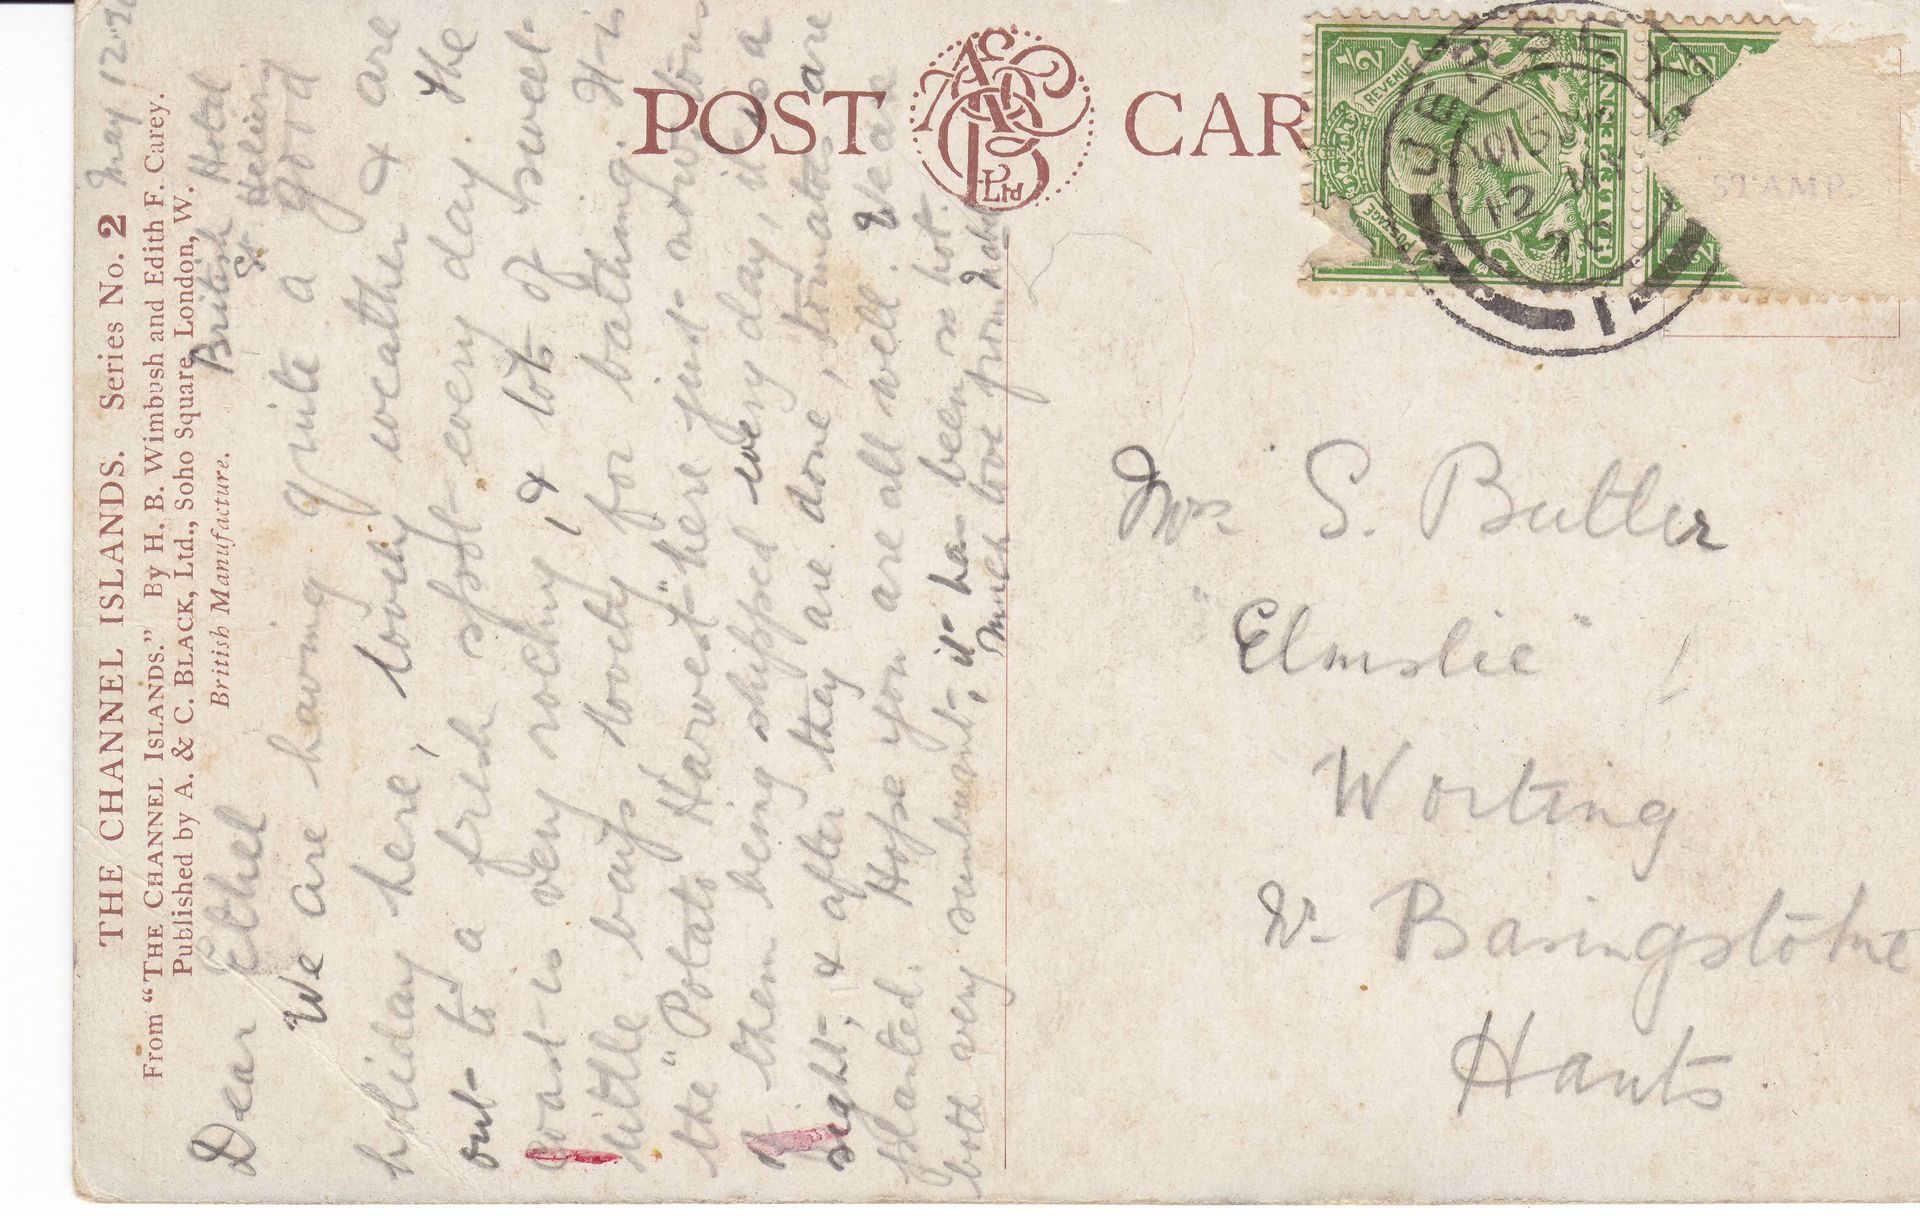 THE CHANNEL ISLANDS. Series No. 2
From "THE CHANNEL ISLANDS." By H. B. Wimbush and Edith F. Carey.
Published by A. & C. BLACK, Ltd., Soho Square, London, W.
British Manufacture.
May 12.
British Hotel
St. Heliers
Dear Ethel
We are having quite a good
holiday here, lovely weather & are
out to a fresh spot every day. The
coast is very rocky, & lots of sweet
little bays lovely for bathing. It is
the "Potato Harvest" here just now tons
of them being shipped every day, it is a
sight, & after they are done, tomatoes are
planted. Hope you are all well. We are
both very sunburnt, it has been so hot.
Much love from
POST CAR
Ltd
REVENUE
POSTAGE
1/2
1/2
JERSEY
12 MY
20
STAMP.
Mrs S. Butler
"Elmslie"
Worting
Nr Basingstoke
Hants